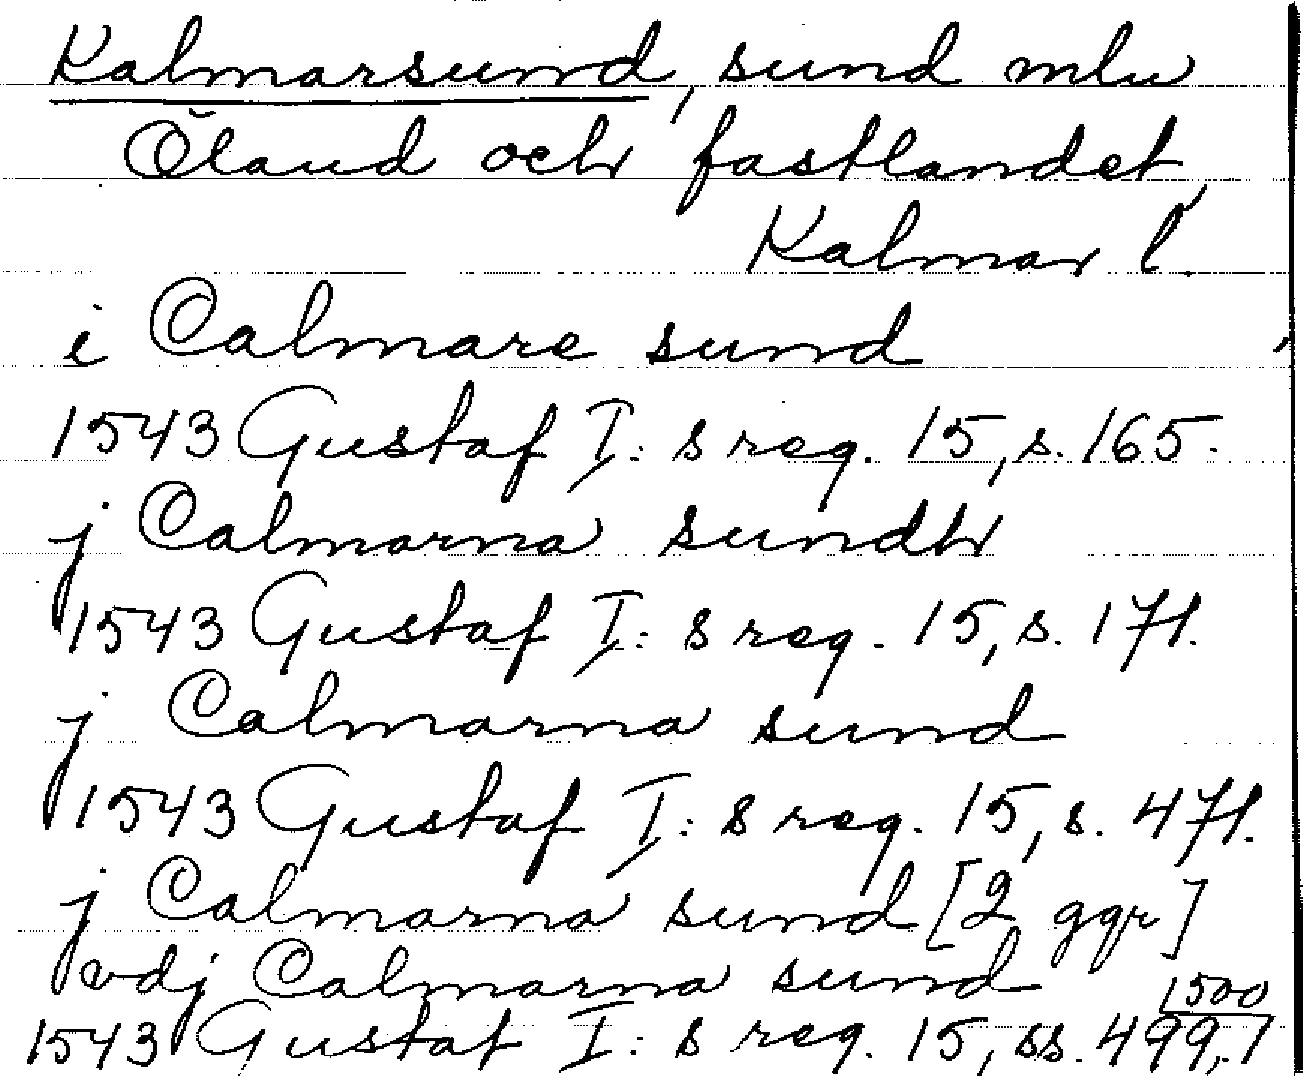 Kalmarsund, sund mlw
Öland och fastlandet,
Kalmar l.
i Calmare sund
1543 Gustaf I:s reg. 15, s. 165.
j Calmarna sundh
1543 Gustaf I:s reg. 15, s. 171.
j Calmarna sund
1543 Gustaf I:s reg. 15, s. 471.
j Calmarna sund [2 ggr]
vdj Calmarna sund
1500
1543 Gustaf I:s reg. 15, ss. 499,